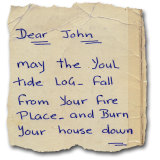 Dear John
may the Youl
tide LoG_ Fall
From Your Fire
Place_ and Burn
Your house down